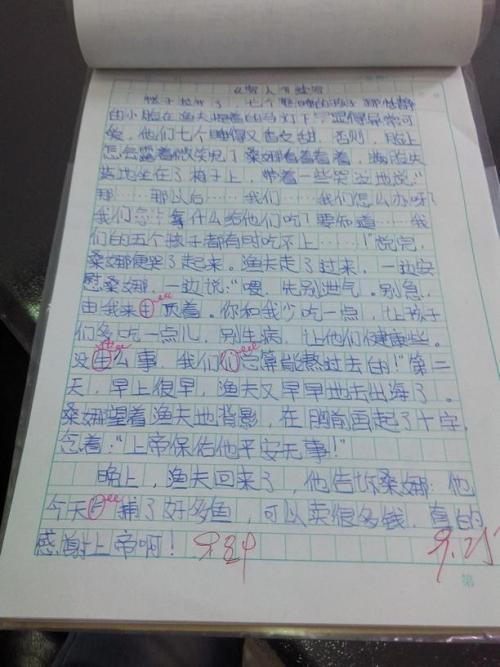 《穷人》续写
帐子拉开了，七个熟睡的孩子那恬静
的小脸在渔夫的马灯下显得异常可
爱，他们七个睡得又香又甜，否则，脸上
怎会露着微笑呢？桑娜看着看着，
地坐在了椅子上，带着一些哭泣地说："
那……那以后……我们……我们怎么办呀？
我们怎么拿什么给他们吃？要知道……我
们的五个孩子都有时吃不上……！"说完，
桑娜便哭了起来。渔夫走了过来，一边安
慰桑娜，一边说："喂，先别泄气。别急，
由我来顶着。你和我少吃一点，让孩子
们多吃一点儿，别生病，让他们健康些。
没什么事，我们总算能熬过去的！"第二
天，早上很早，渔夫又早早地去出海了。
桑娜望着渔夫地背影，在胸前画起了十字，
念着："上帝保佑他平安无事！"
晚上，渔夫回来了，他告诉桑娜：他
今天捕了好多鱼，可以卖很多钱，真的
感谢上帝啊！
9.25
第